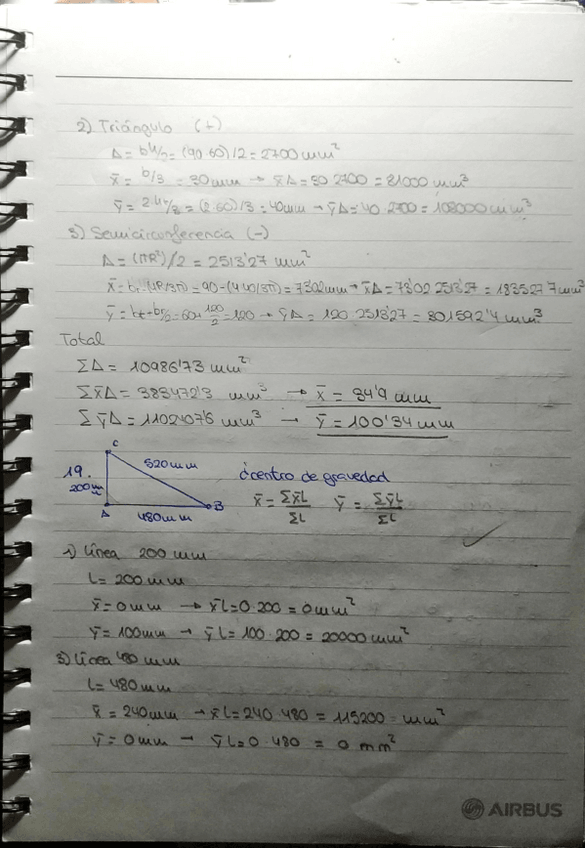 2) Triángulo (+)
A = bh/2 = (90·60)/2 = 2700 mm²
x̄ = b/3 = 30mm → x̄A = 30·2700 = 81000 mm³
ȳ = 2h/3 = (2·60)/3 = 40mm → ȳA = 40·2700 = 108000 mm³
3) Semicircunferencia (-)
A = (πR²)/2 = 2513'27 mm²
x̄ = b - (4R/3π) = 90 - (4·40/3π) = 73'02mm → x̄A = 73'02·2513'27 = 183527'7 mm³
= 60 + 120/2 = 120 → ȳA = 120·2513'27 = 301592'4 mm³
Total
ΣA = 10986'73 mm²
Σx̄A = 383472'3 mm³ → x̄ = 34'9 mm
ΣȳA = 1102407'6 mm³ → ȳ = 100'34 mm
C
19. 520mm ¿centro de gravedad
200m
x̄ = Σx̄L/ΣL ȳ = ΣȳL/ΣL
A 480mm B
1) Línea 200 mm
L = 200 mm
x̄ = 0mm → x̄L = 0·200 = 0mm²
ȳ = 100mm → ȳL = 100·200 = 20000mm²
2) Línea 480 mm
L = 480mm
x̄ = 240mm → x̄L = 240·480 = 115200 mm²
ȳ = 0mm → ȳL = 0·480 = 0 mm²
AIRBUS